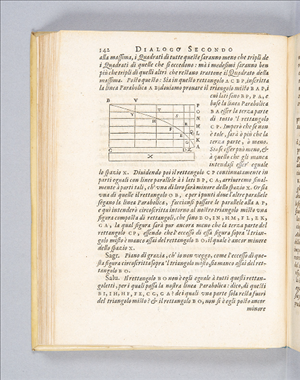 142 DIALOGO SECONDO
alla massima, i Quadrati di tutte queste saranno meno che tripli de
i Quadrati di quelle che si eccedono: ma i medesimi saranno ben
più che tripli di quelli altri che restano trattone il Quadrato della
massima. Posto questo: Sia in questo rettangolo ACBP, inscritta
la linea Parabolica AB: doviamo provare il triangolo misto BAP,
cui lati sono BP, PA, e
base la linea Parabolica
BA esser la terza parte
di tutto 'l rettangolo
CP. Imperò che se non
è tale, sarà ò più che la
terza parte, ò meno.
Sia se esser può meno, &
à quello che gli manca
intendasi esser eguale
lo spazio X. Dividendo poi il rettangolo CP continuamente in
parti eguali con linee parallele à i lati BP, CA, arriveremo final-
mente à parti tali, ch'una di loro sarà minore dello spazio X. Or sia
una di quelle il rettangolo OB, e per i punti dove l'altre parallele
segano la linea Parabolica, facciansi passare le parallele alla AP,
e quì intenderò circoscritta intorno al nostro triangolo misto una
figura composta di rettangoli, che sono BO, IN, HM, FL, EK,
GA, la qual figura sarà pur ancora meno che la terza parte del
rettangolo CP, essendo che l'eccesso di essa figura sopra 'l trian-
golo misto è manco assai del rettangolo BO. il quale è ancor minore
dello spazio X.
Sagr. Piano di grazia, ch'io non veggo, come l'eccesso di que-
sta figura circoscritta sopra 'l triangolo misto, sia manco assai del ret-
tangolo BO.
Salu. Il rettangolo BO non è egli eguale à tutti questi rettan-
goletti, per i quali passa la nostra linea Parabolica: dico, di questi
BI, IH, HF, FE, EG, GA? de i quali una parte sola resta fuori
del triangolo misto? & il rettangolo BO, non si è egli posto ancor
minore